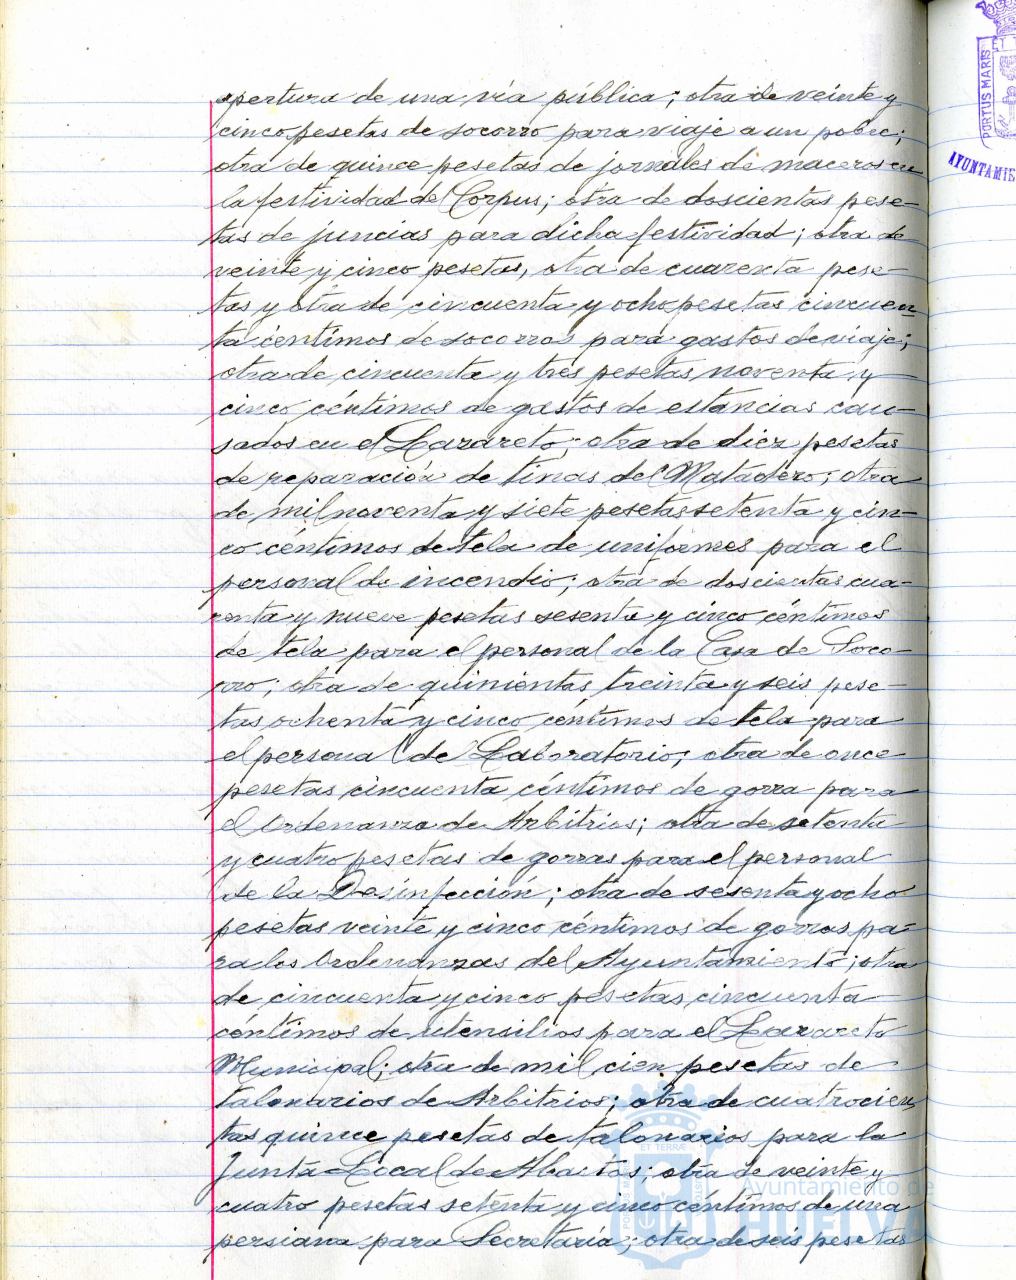 apertura de una vía pública; otra de veinte y
cinco pesetas de socorro para viaje a un pobre;
otra de quince pesetas de jornales de maceros en
la festividad del Corpus; otra de doscientas pese-
tas de juncias para dicha festividad; otra de
veinte y cinco pesetas, otra de cuarenta pese-
tas y otra de cincuenta y ocho pesetas cincuen
ta céntimos de socorros para gastos de viaje;
otra de cincuenta y tres pesetas noventa y
cinco céntimos de gastos de estancias cau-
sados en el Lazareto; otra de diez pesetas
de reparación de tinas del Matadero; otra
de mil noventa y siete pesetas setenta y cin-
co céntimos de tela de uniformes para el
personal de incendio; otra de doscientas cua-
renta y nueve pesetas sesenta y cinco céntimos
de tela para el personal de la Casa de Soco-
rro; otra de quinientas treinta y seis pese-
tas ochenta y cinco céntimos de tela para
el personal de Laboratorio; otra de once
pesetas cincuenta céntimos de gorra para
el Ordenanza de Arbitrios; otra de setenta
y cuatro pesetas de gorras para el personal
de la Desinfección; otra de sesenta y ocho
pesetas veinte y cinco céntimos de gorras pa-
ra los Ordenanzas del Ayuntamiento; otra
de cincuenta y cinco pesetas cincuenta
céntimos de utensilios para el Lazareto
Municipal; otra de mil cien pesetas de
talonarios de Arbitrios; otra de cuatrocien
tas quince pesetas de talonarios para la
Junta Local de Abastos; otra de veinte y
cuatro pesetas setenta y cinco céntimos de una
persiana para Secretaría; otra de seis pesetas
PORTUS MARIS
AYUNTAMIE
ET TERRÆ
Ayuntamiento de
HUELVA